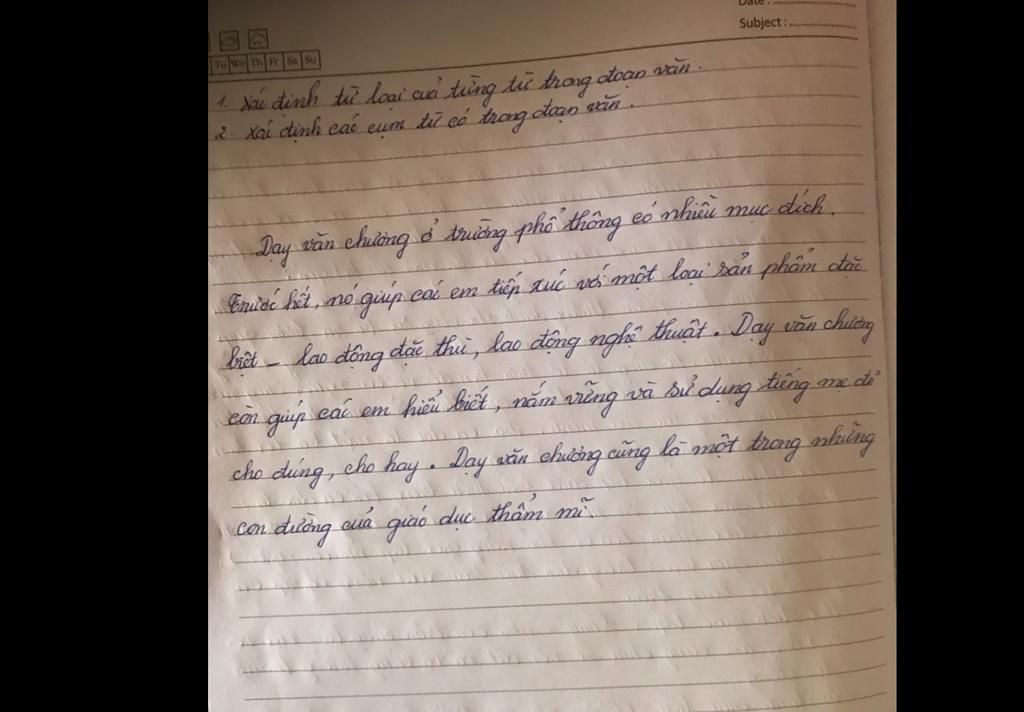 Date :
Subject :
Tu We Th Fr Sa Su
1. Xác định từ loại của từng từ trong đoạn văn.
2. Xác định các cụm từ có trong đoạn văn.
Dạy văn chương ở trường phổ thông có nhiều mục đích.
Trước hết, nó giúp các em tiếp xúc với một loại sản phẩm đặc
biệt - lao động đặc thù, lao động nghệ thuật. Dạy văn chương
còn giúp các em hiểu biết, nắm vững và sử dụng tiếng mẹ đẻ
cho đúng, cho hay. Dạy văn chương cũng là một trong những
con đường của giáo dục thẩm mĩ.